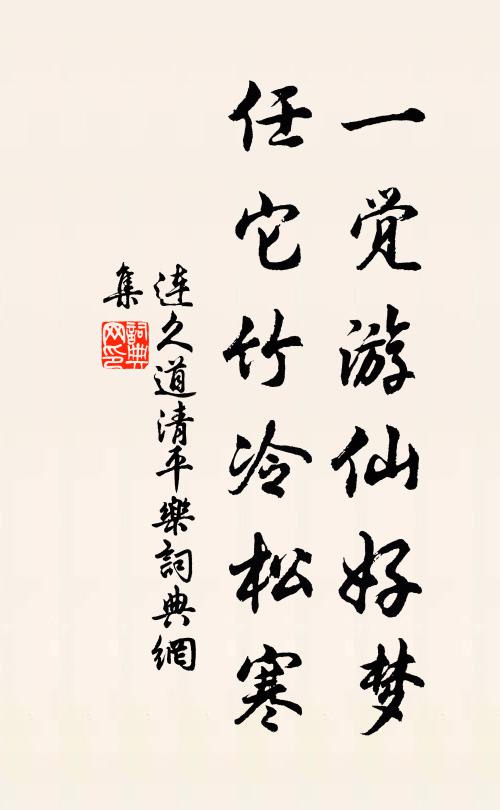 一觉游仙好梦
任它竹冷松寒
连久道清平樂詞典網
集
詞典
网印